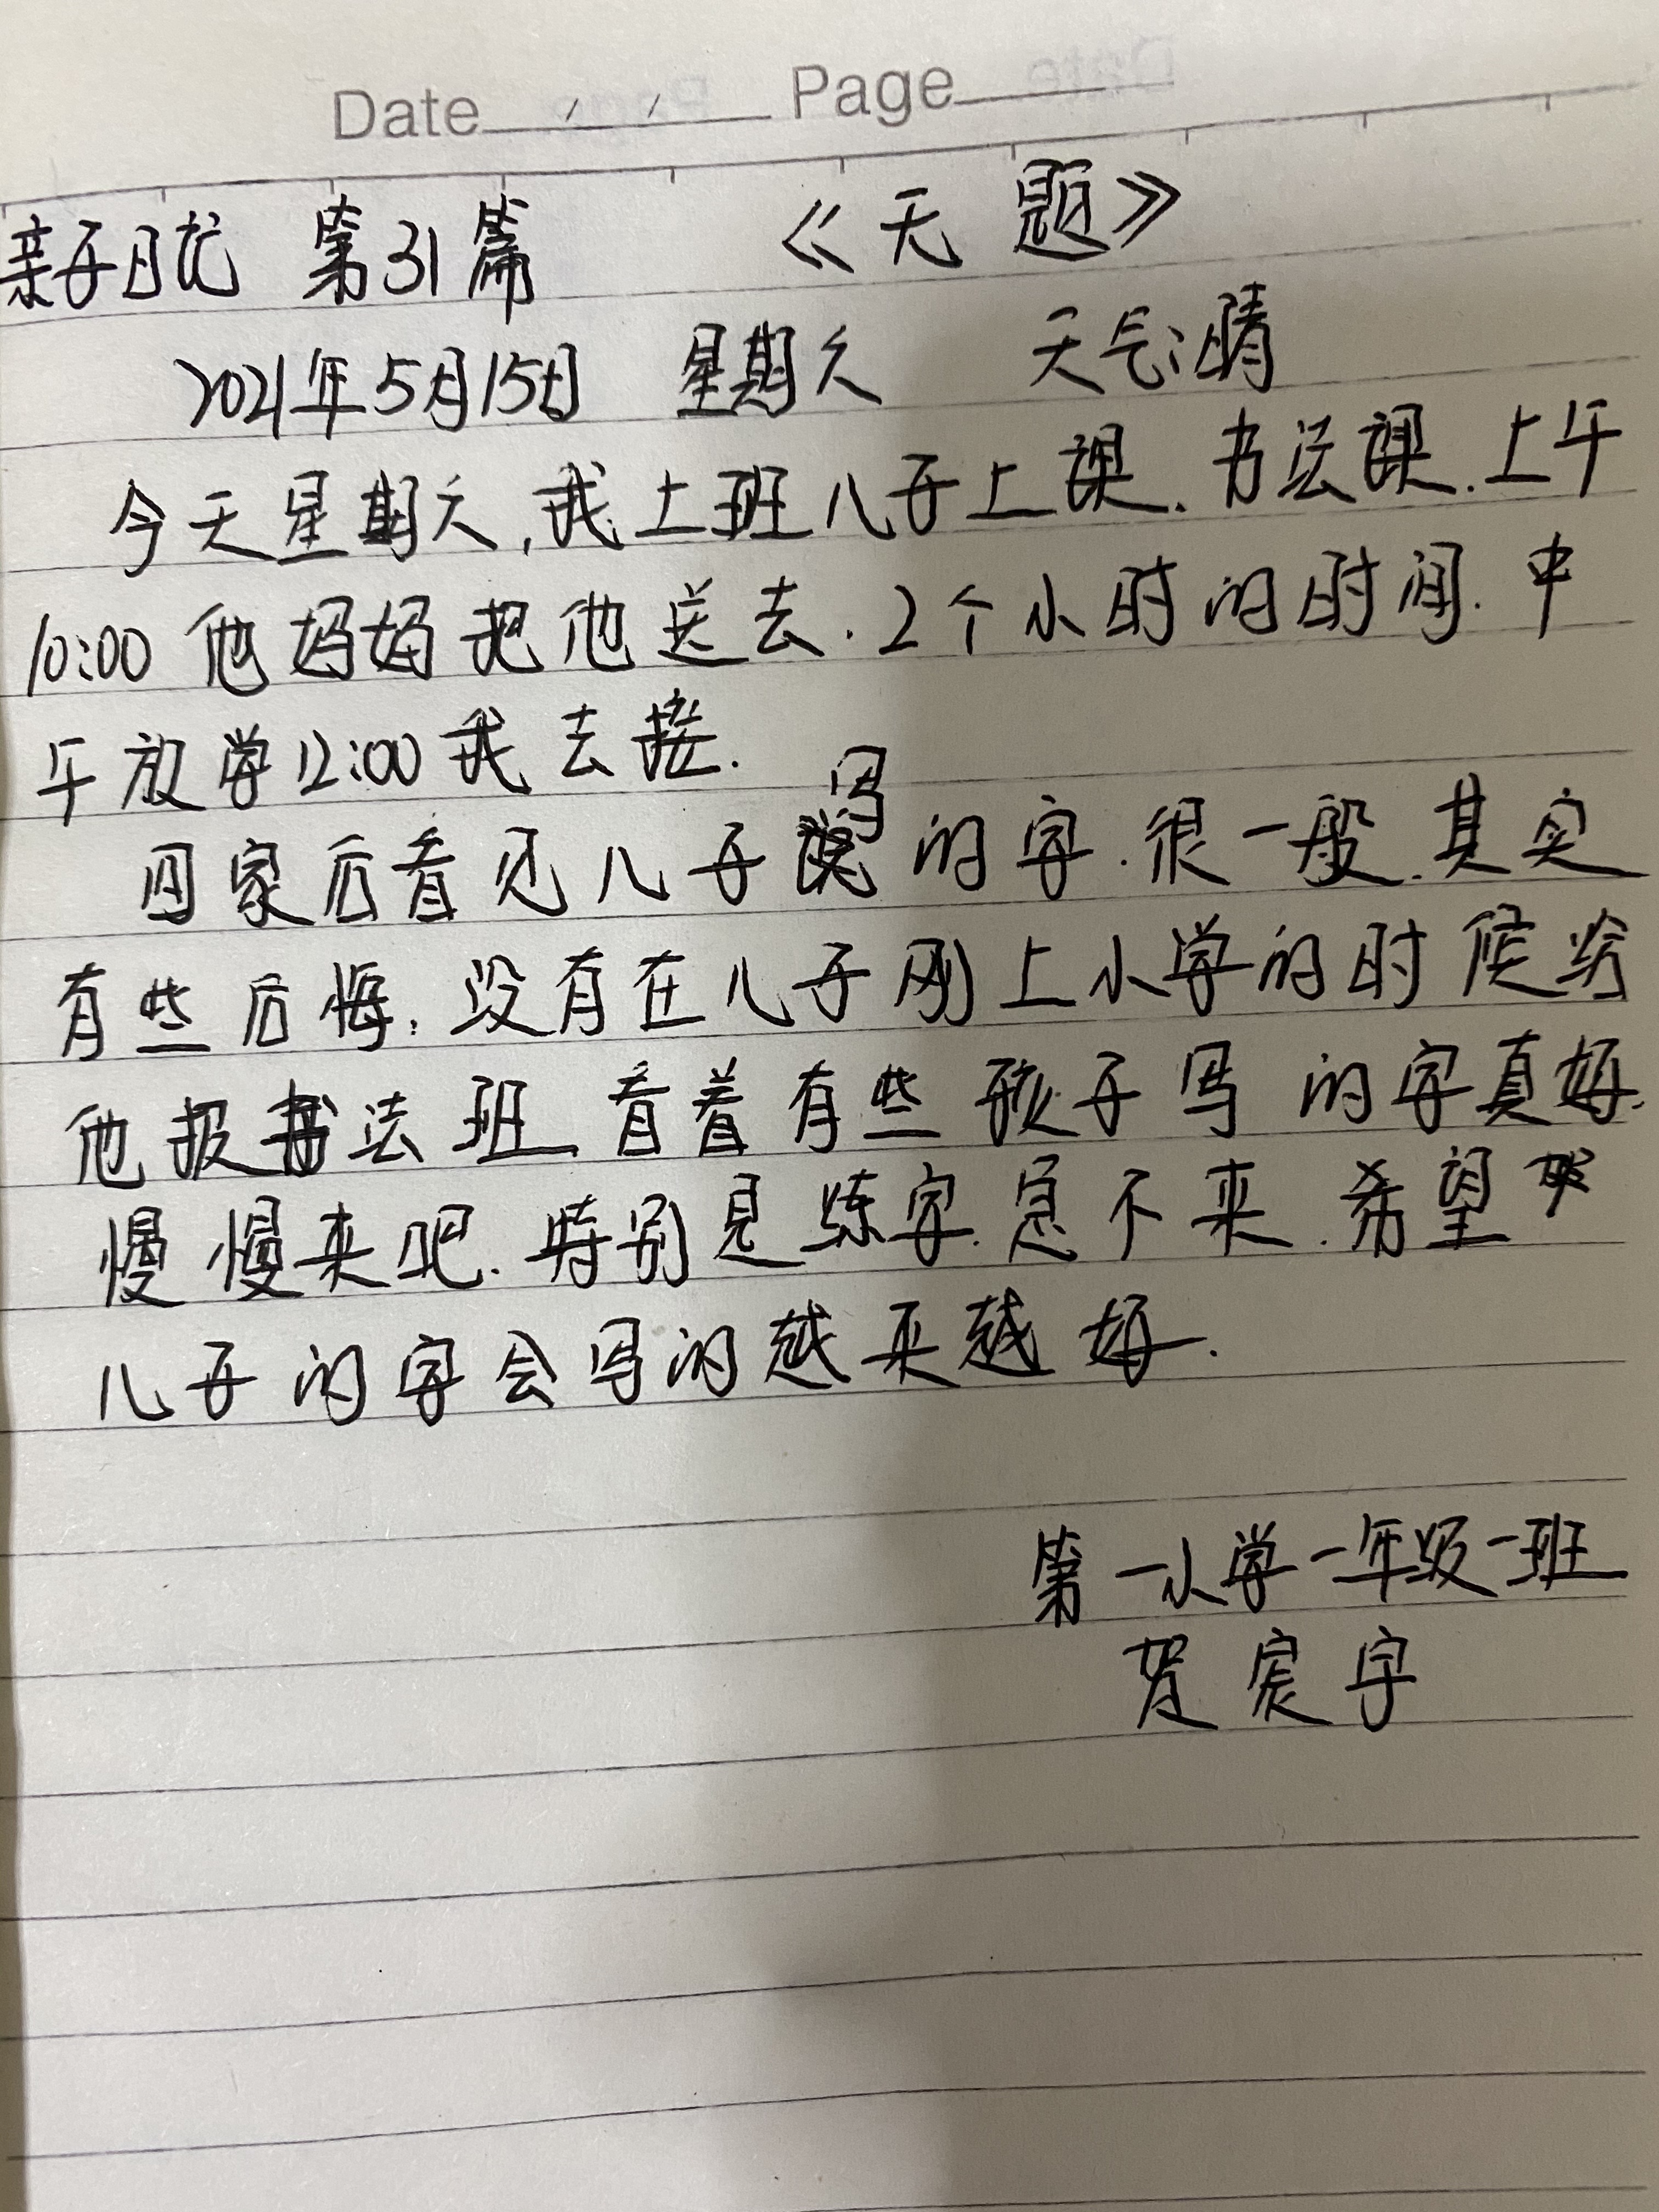 Date / / Page
亲子日记 第31篇 《无题》
2021年5月15日 星期六 天气:晴
今天星期六,我上班儿子上课.书法课.上午
10:00他妈妈把他送去.2个小时的时间.中
午放学12:00我去接.
回家后看见儿子写的字.很一般.其实
有些后悔.没有在儿子刚上小学的时候给
他报书法班.看着有些孩子写的字真好.
慢慢来吧.特别是练字.急不来.希望
儿子的字会写的越来越好.
第一小学一年级一班
贺宸宇